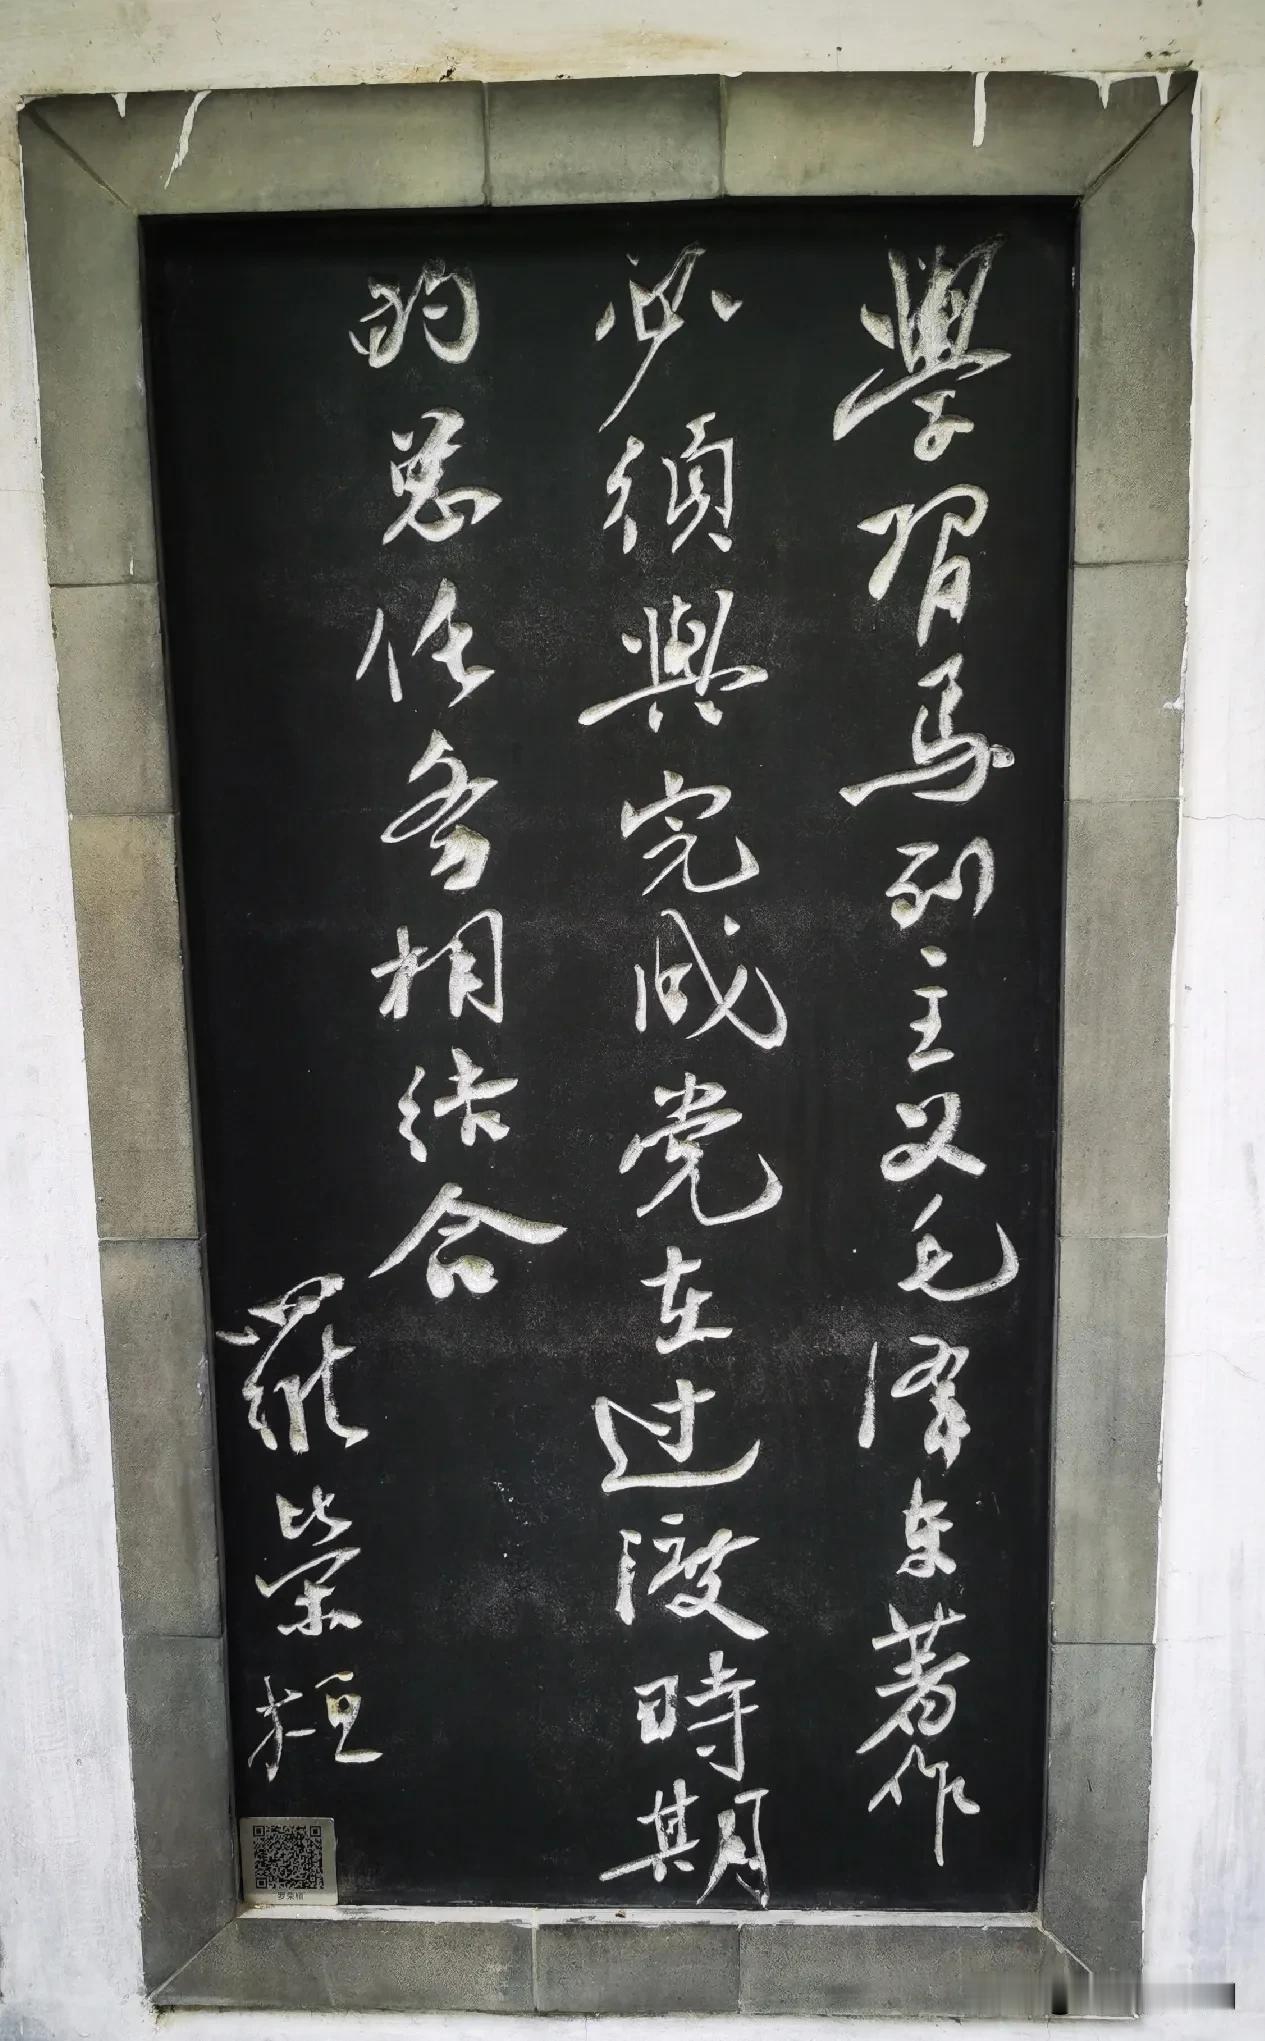 學習馬列主义毛泽东著作
必須與完成党在过渡時期
的总任务相结合
羅榮桓
罗荣桓